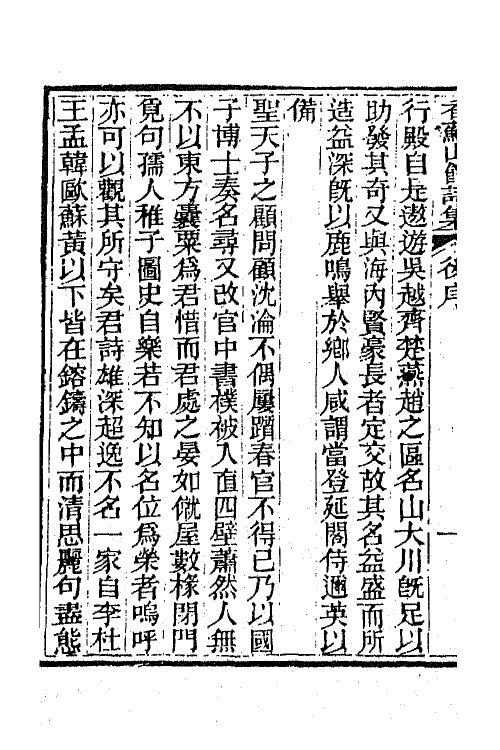 香蘇山館詩集 後序 一
行殿自是遨遊吳越齊楚燕趙之區名山大川旣足以
助發其奇又與海內賢豪長者定交故其名益盛而所
造益深旣以鹿鳴舉於鄉人咸謂當登延閣侍邇英以
備
聖天子之顧問顧沈淪不偶屢躓春官不得已乃以國
子博士奏名尋又改官中書襆被入直四壁蕭然人無
不以東方囊粟爲君惜而君處之晏如僦屋數椽閉門
覓句孺人稚子圖史自樂若不知以名位爲榮者嗚呼
亦可以觀其所守矣君詩雄深超逸不名一家自李杜
王孟韓歐蘇黃以下皆在鎔鑄之中而清思麗句盡態